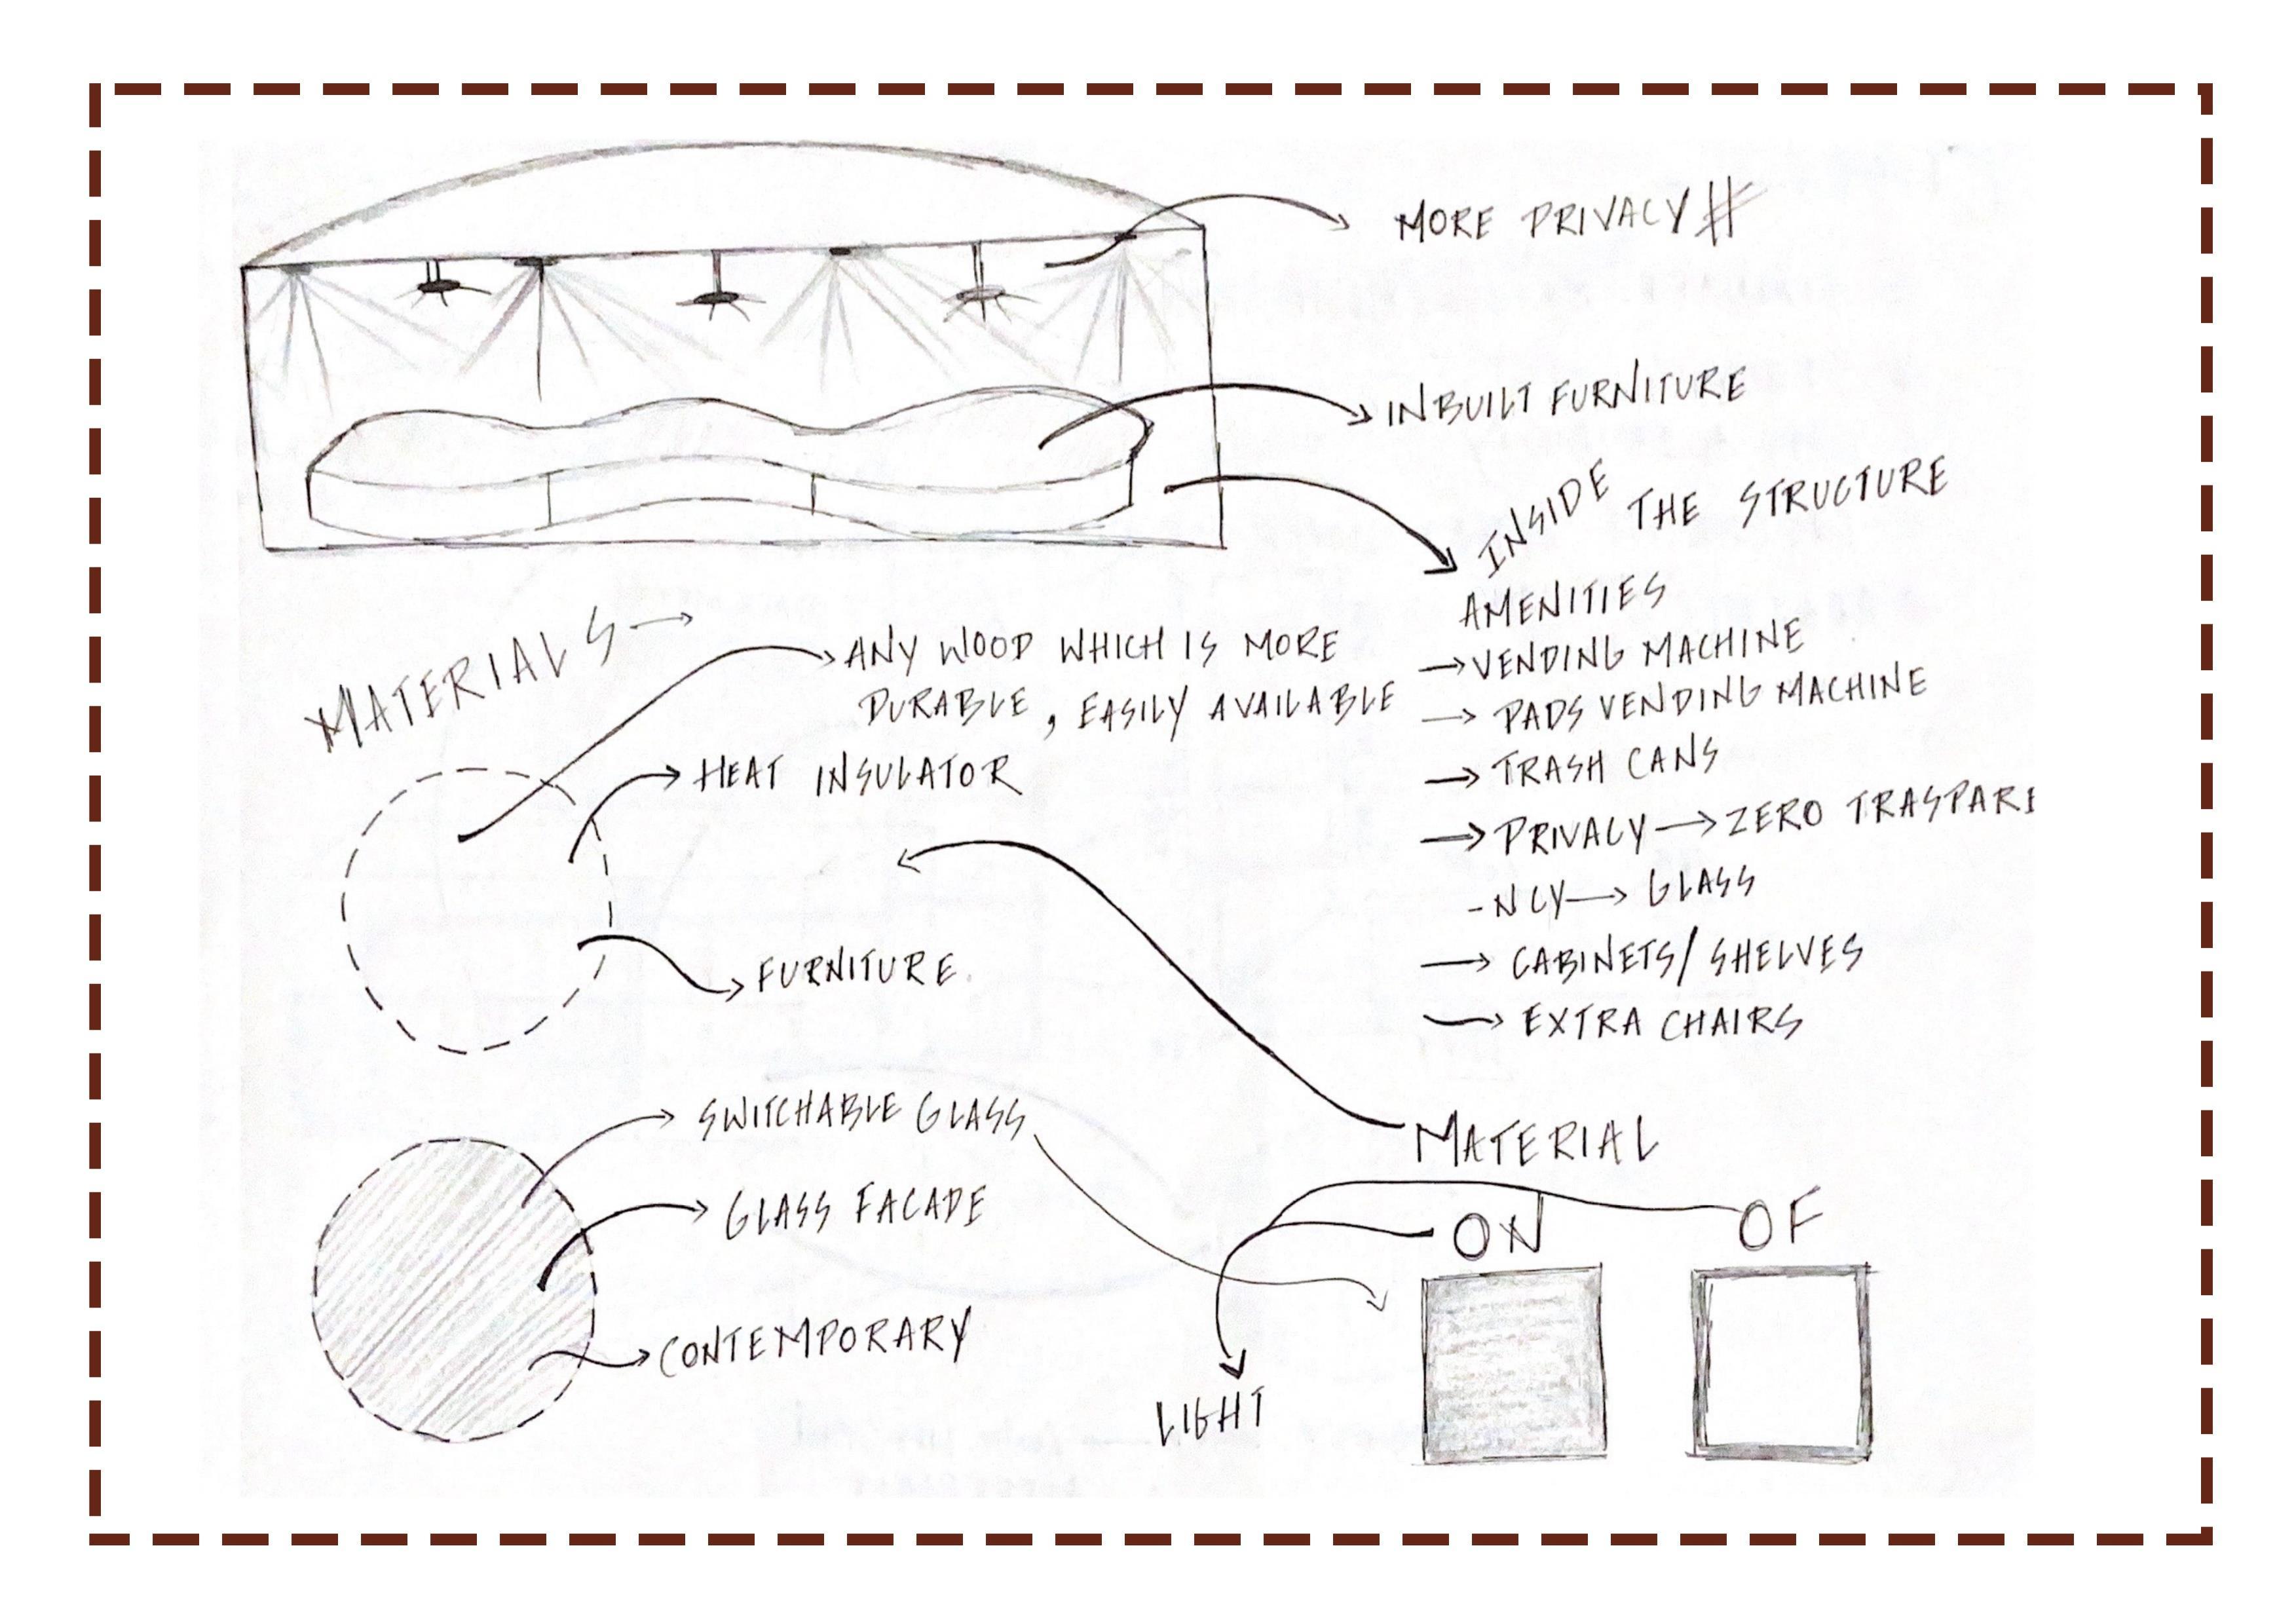 MORE PRIVACY #
INBUILT FURNITURE
INSIDE THE STRUCTURE
AMENITIES
→ VENDING MACHINE
→ PADS VENDING MACHINE
→ TRASH CANS
→ PRIVACY → ZERO TRASPARE
- NCY → GLASS
→ CABINETS / SHELVES
→ EXTRA CHAIRS
MATERIALS →
ANY WOOD WHICH IS MORE
DURABLE, EASILY AVAILABLE
HEAT INSULATOR
FURNITURE
MATERIAL
SWITCHABLE GLASS
GLASS FACADE
CONTEMPORARY
ON
OF
LIGHT